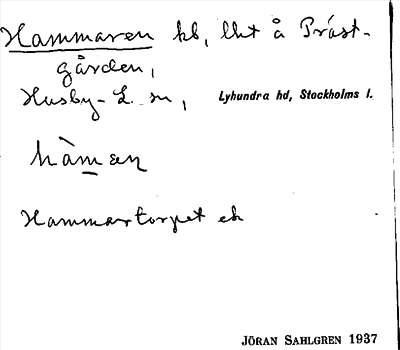 Hammaren kl, lht å Präst-
gården,
Husby-L. sn, Lyhundra hd, Stockholms l.
hàman
Hammartorpet ek
JÖRAN SAHLGREN 1937